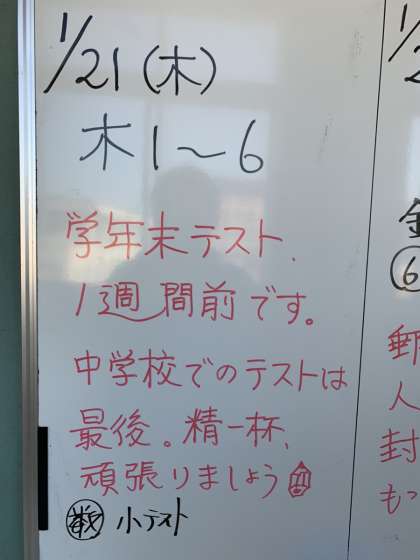 1/21(木)
木1〜6
学年末テスト、
1週間前です。
中学校でのテストは
最後。精一杯、
頑張りましょう
小テスト
1/2
金
6
郵
人
封
もっ